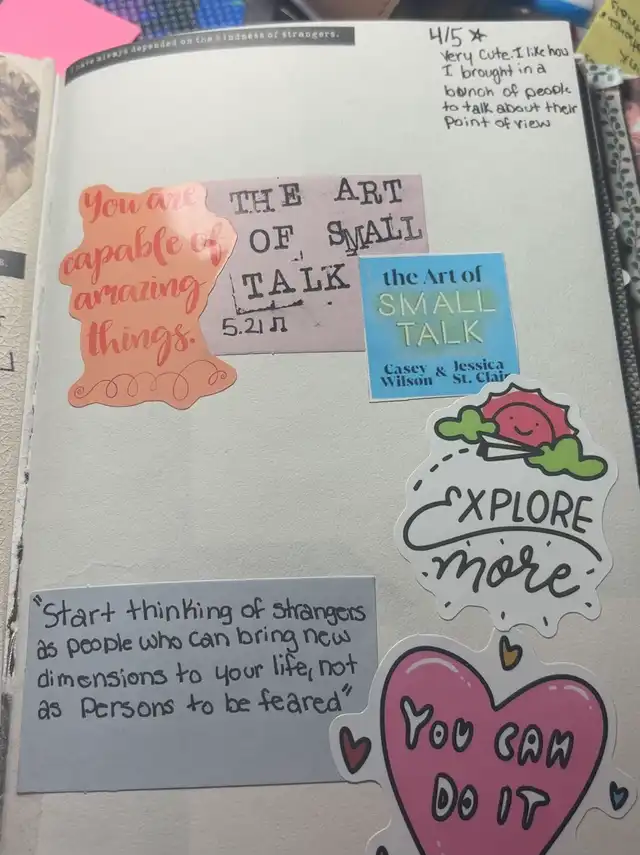 I have always depended on the kindness of strangers.
4/5 ★
Very cute. I like how
I brought in a
bunch of people
to talk about their
Point of view
You are
capable of
amazing
things.
THE ART
OF SMALL
TALK
5.21
the Art of
SMALL
TALK
Casey Wilson & Jessica St. Clair
EXPLORE
more
"Start thinking of strangers
as people who can bring new
dimensions to your life, not
as Persons to be feared"
YOU CAN
DO IT